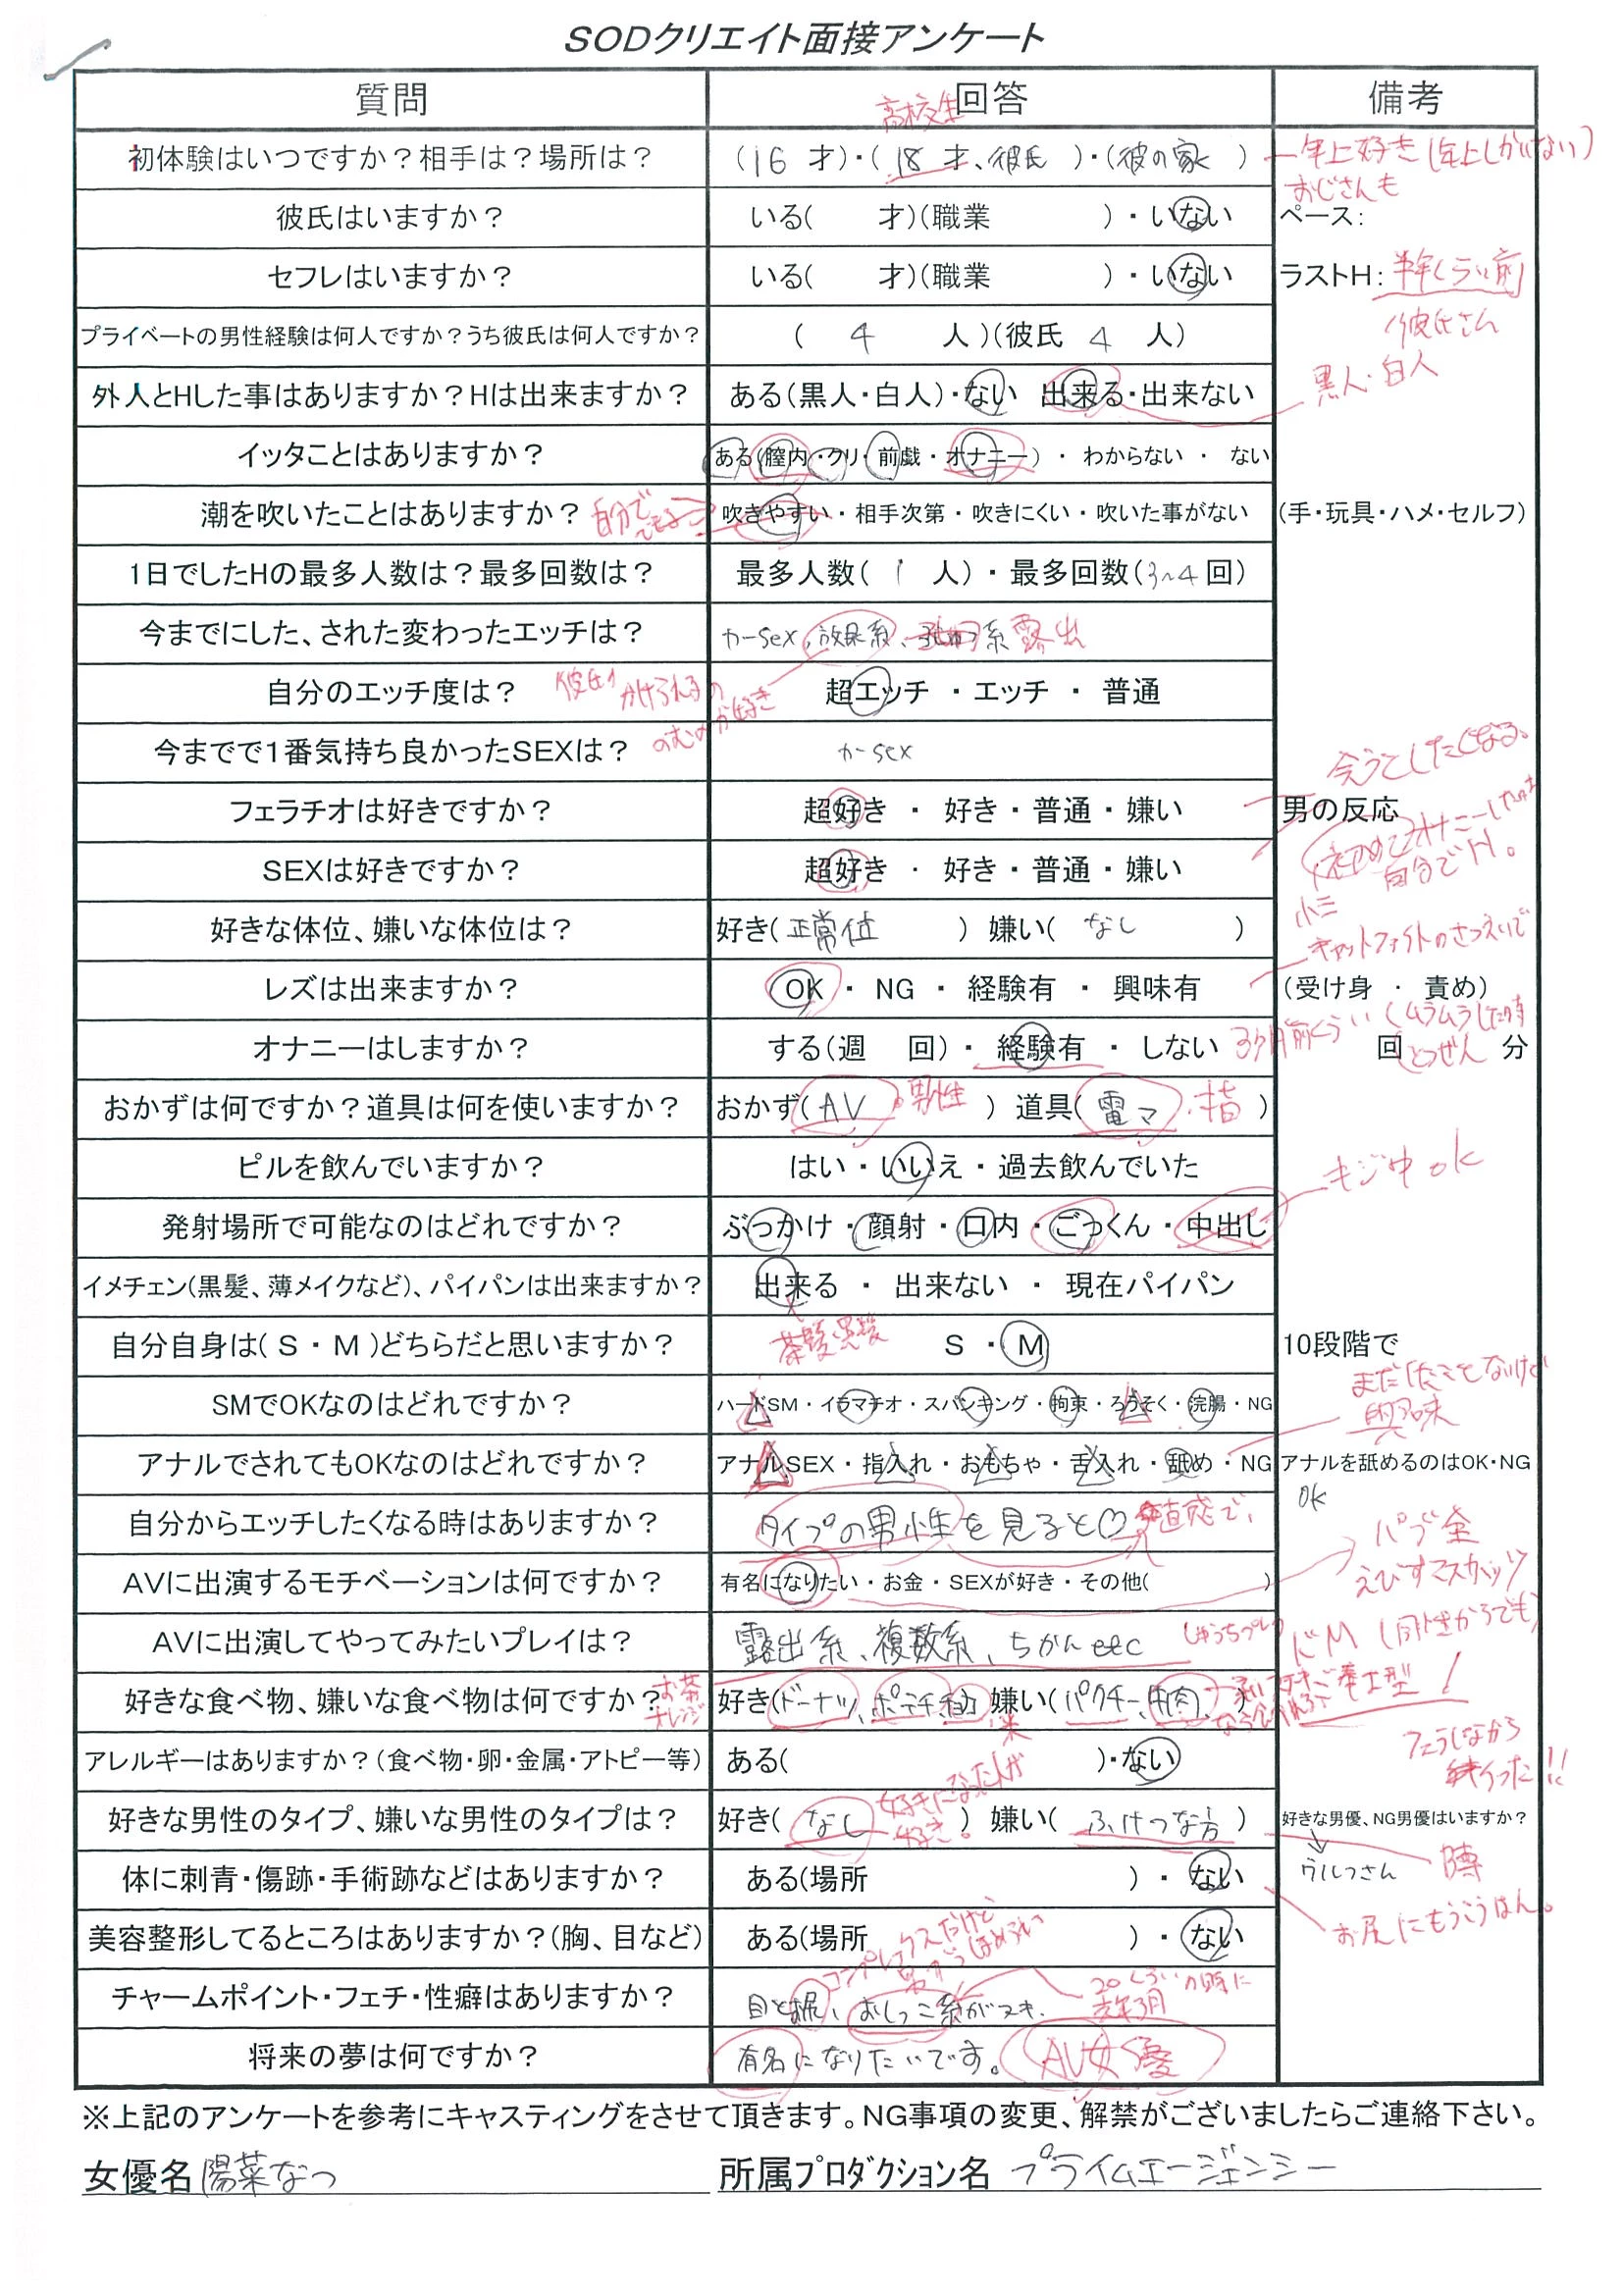 SODクリエイト面接アンケート
質問 回答 備考
彼氏はいますか？ いる( 才)(職業 )・いない ペース：
セフレはいますか？ いる( 才)(職業 )・いない ラストH：半年くらい前
彼氏さん
プライベートの男性経験は何人ですか？うち彼氏は何人ですか？ ( 4 人)(彼氏 4 人)
外人とHした事はありますか？Hは出来ますか？ ある(黒人・白人)・ない 出来る・出来ない 黒人・白人
イッタことはありますか？ ある(膣内・クリ・前戯・オナニー)・わからない・ない
潮を吹いたことはありますか？ 自分でできる 吹きやすい・相手次第・吹きにくい・吹いた事がない (手・玩具・ハメ・セルフ)
1日でしたHの最多人数は？最多回数は？ 最多人数( 1 人)・最多回数(3~4回)
今までにした、された変わったエッチは？ カーsex、放尿系、露出
自分のエッチ度は？ 超エッチ・エッチ・普通
かけられるの
のむのが好き
今までで1番気持ち良かったSEXは？ カーsex
フェラチオは好きですか？ 超好き・好き・普通・嫌い 男の反応
SEXは好きですか？ 超好き・好き・普通・嫌い
好きな体位、嫌いな体位は？ 好き(正常位) 嫌い(なし)
キャットファイトのさつえいで
レズは出来ますか？ OK・NG・経験有・興味有 (受け身・責め)
オナニーはしますか？ する(週 回)・経験有・しない 3ヶ月前くらい 回 分
ムラムラした時
とつぜん
おかずは何ですか？道具は何を使いますか？ おかず(AV 男性) 道具(電マ・指)
ピルを飲んでいますか？ はい・いいえ・過去飲んでいた
ギジ中ok
発射場所で可能なのはどれですか？ ぶっかけ・顔射・口内・ごっくん・中出し
イメチェン(黒髪、薄メイクなど)、パイパンは出来ますか？ 出来る・出来ない・現在パイパン
茶髪、黒髪
自分自身は(S・M)どちらだと思いますか？ S・M 10段階で
まだしたことないけど
興味
SMでOKなのはどれですか？ ハードSM・イラマチオ・スパンキング・拘束・ろうそく・浣腸・NG
アナルでされてもOKなのはどれですか？ アナルSEX・指入れ・おもちゃ・舌入れ・舐め・NG アナルを舐めるのはOK・NG
OK
自分からエッチしたくなる時はありますか？ タイプの男性を見ると♡ 直感で、
えびすマスカッツ
AVに出演するモチベーションは何ですか？ 有名になりたい・お金・SEXが好き・その他( )
AVに出演してやってみたいプレイは？ 露出系、複数系、ちかんetc しゅうちプレイ
ドM
好きな食べ物、嫌いな食べ物は何ですか？ 好き(ドーナツ、ポテチ) 嫌い(パクチー、牛肉)
お茶
オレンジ
アレルギーはありますか？(食べ物・卵・金属・アトピー等) ある( )・ない
好きになった人が
好き。
好きな男性のタイプ、嫌いな男性のタイプは？ 好き(なし) 嫌い(ふけつな方) 好きな男優、NG男優はいますか？
ウルフさん
体に刺青・傷跡・手術跡などはありますか？ ある(場所 )・ない
お尻にもうこうはん。
美容整形してるところはありますか？(胸、目など) ある(場所 )・ない
コンプレックスだけど
チャームポイント・フェチ・性癖はありますか？ 目と尻、おしっこ系がスキ.
20くらいの時に
将来の夢は何ですか？ 有名になりたいです。 AV女優
※上記のアンケートを参考にキャスティングをさせて頂きます。NG事項の変更、解禁がございましたらご連絡下さい。
女優名 陽菜なつ 所属プロダクション名 プライムエージェンシー